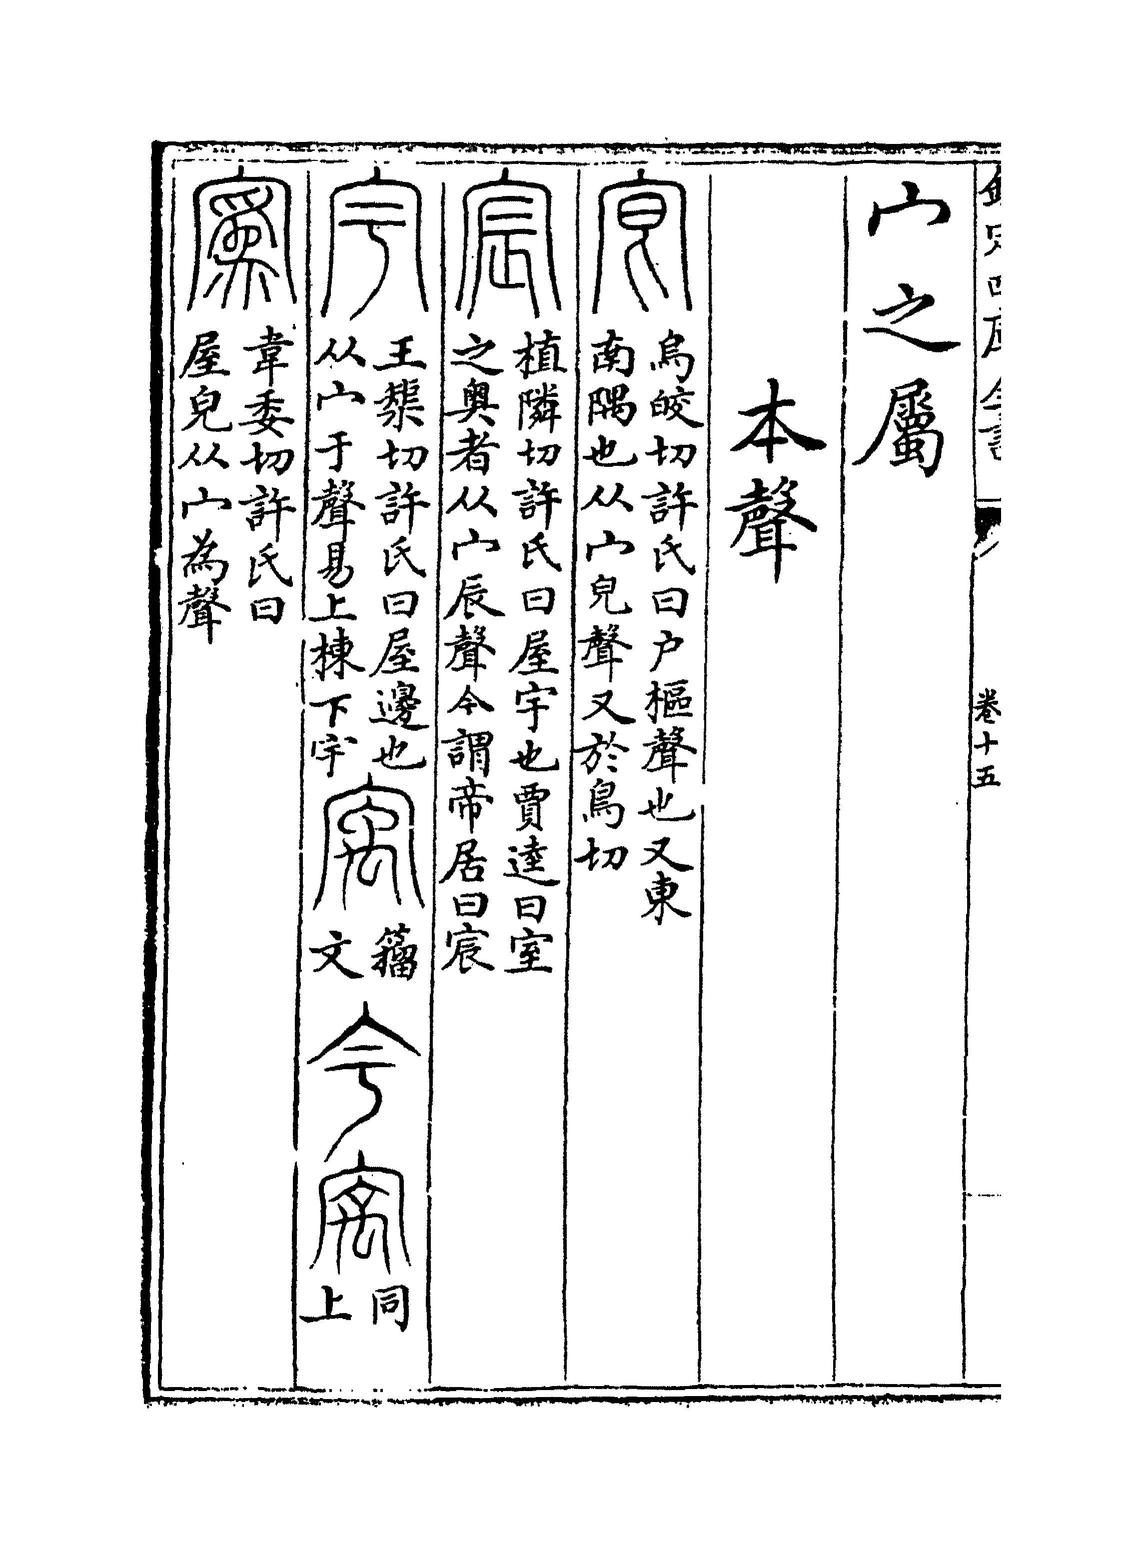 欽定四庫全書 卷十五
宀之屬
本聲
㝔
烏皎切許氏曰户樞聲也又東
南隅也从宀皃聲又於鳥切
宸
植隣切許氏曰屋宇也賈逵曰室
之奥者从宀辰聲今謂帝居曰宸
宇
王榘切許氏曰屋邊也
从宀于聲易上棟下宇
㝢
籀
文
宇
㝢
同
上
寪
韋委切許氏曰
屋皃从宀為聲